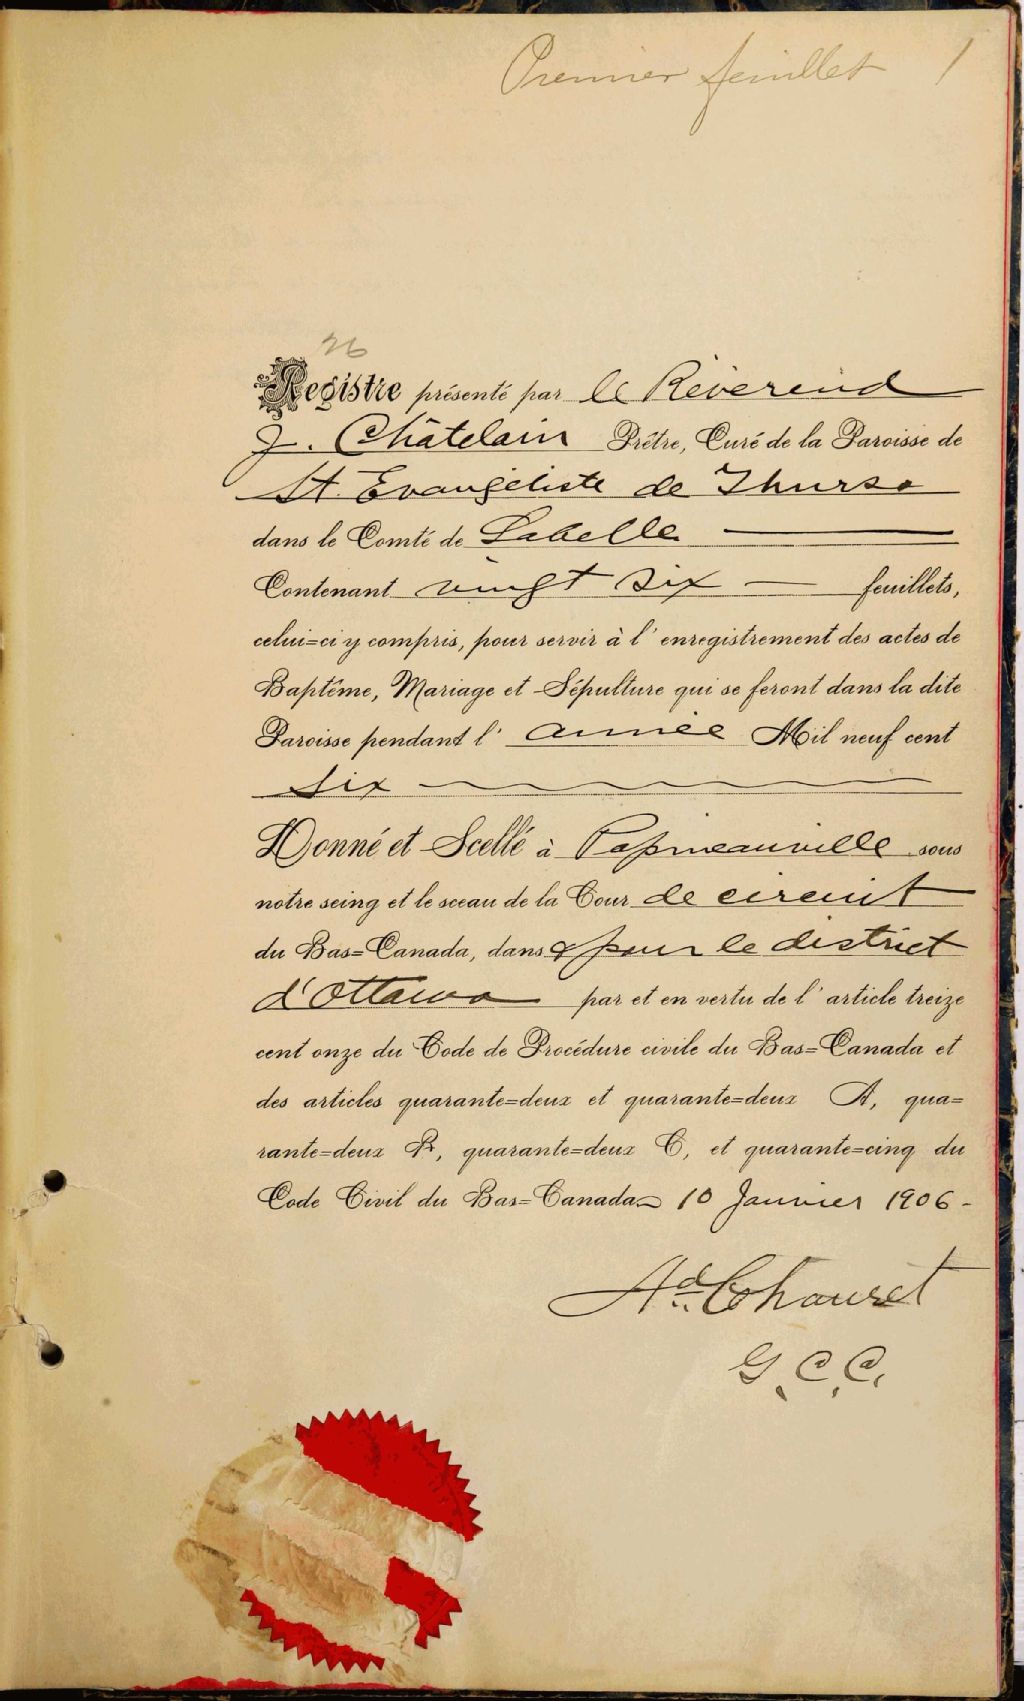 Premier feuillet 1
26
Registre présenté par le Révérend
J. Châtelain Prêtre, Curé de la Paroisse de
St. Evangéliste de Thurso
dans le Comté de Labelle
Contenant vingt six feuillets,
celui=ci y compris, pour servir à l'enregistrement des actes de
Baptême, Mariage et Sépulture qui se feront dans la dite
Paroisse pendant l'année Mil neuf cent
six
Donné et Scellé à Papineauville sous
notre seing et le sceau de la Cour de circuit
du Bas=Canada, dans & pour le district
d'Ottawa par et en vertu de l'article treize
cent onze du Code de Procédure civile du Bas=Canada et
des articles quarante=deux et quarante=deux A, qua=
rante=deux B, quarante=deux C, et quarante=cinq du
Code Civil du Bas=Canada 10 Janvier 1906 -
Ad. Chauret
G. C. C.